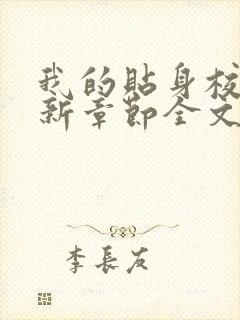 我的貼身校
新章節全文
李長友